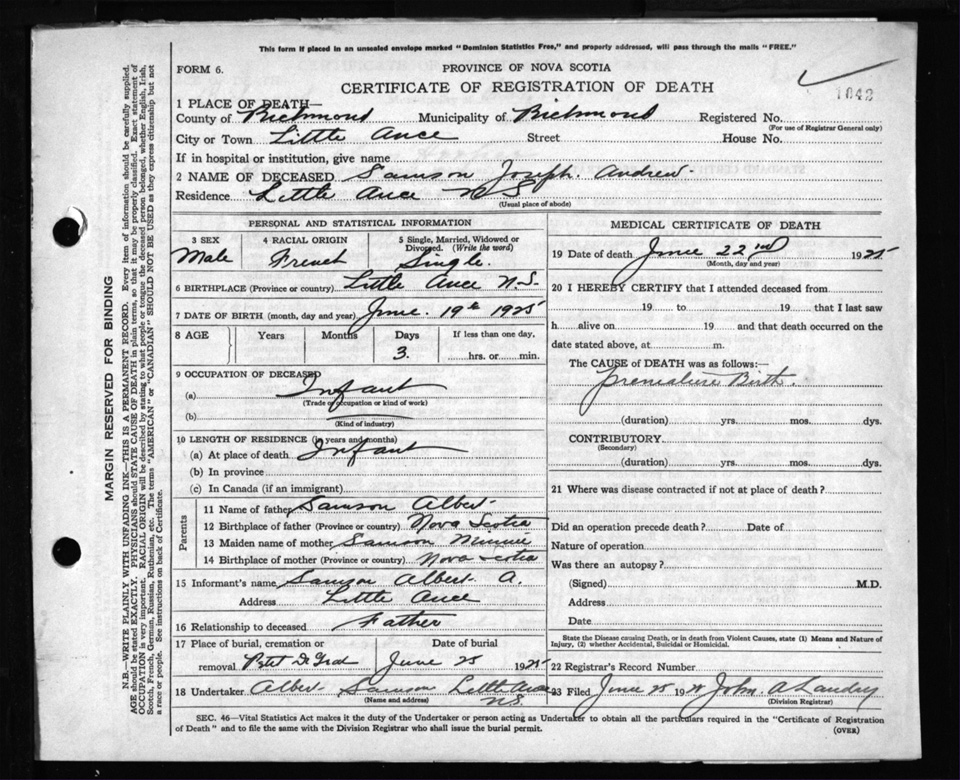 This form if placed in an unsealed envelope marked "Dominion Statistics Free," and properly addressed, will pass through the mails "FREE."
FORM 6.
PROVINCE OF NOVA SCOTIA
CERTIFICATE OF REGISTRATION OF DEATH
1042
1 PLACE OF DEATH—
County of Richmond Municipality of Richmond Registered No.
(For use of Registrar General only)
City or Town Little Ance Street House No.
If in hospital or institution, give name
2 NAME OF DECEASED Samson Joseph. Andrew
Residence Little Ance N S
(Usual place of abode)
PERSONAL AND STATISTICAL INFORMATION
3 SEX
Male
4 RACIAL ORIGIN
French
5 Single, Married, Widowed or Divorced. (Write the word)
Single.
6 BIRTHPLACE (Province or country) Little Ance N.S.
7 DATE OF BIRTH (month, day and year) June. 19th 1925
8 AGE Years Months Days If less than one day,
3. hrs. or min.
9 OCCUPATION OF DECEASED
(a) Infant
(Trade or occupation or kind of work)
(b)
(Kind of industry)
10 LENGTH OF RESIDENCE (in years and months)
(a) At place of death Infant
(b) In province
(c) In Canada (if an immigrant)
Parents
11 Name of father Samson Albert
12 Birthplace of father (Province or country) Nova Scotia
13 Maiden name of mother Samson Minnie
14 Birthplace of mother (Province or country) Nova Scotia
15 Informant's name Samson Albert A.
Address Little Ance
16 Relationship to deceased Father
17 Place of burial, cremation or Date of burial
removal Petit De Grat June 25 1925
18 Undertaker Albert Samson Little Ance
(Name and address) N.S.
MEDICAL CERTIFICATE OF DEATH
19 Date of death June 22nd 1925
(Month, day and year)
20 I HEREBY CERTIFY that I attended deceased from
19 to 19 that I last saw
h alive on 19 and that death occurred on the
date stated above, at m.
The CAUSE of DEATH was as follows:—
premature Birth.
(duration) yrs. mos. dys.
CONTRIBUTORY
(Secondary)
(duration) yrs. mos. dys.
21 Where was disease contracted if not at place of death?
Did an operation precede death? Date of
Nature of operation
Was there an autopsy?
(Signed) M.D.
Address
Date
State the Disease causing Death, or in death from Violent Causes, state (1) Means and Nature of
Injury, (2) whether Accidental, Suicidal or Homicidal.
22 Registrar's Record Number
23 Filed June 25 19 John A Landry
(Division Registrar)
SEC. 46—Vital Statistics Act makes it the duty of the Undertaker or person acting as Undertaker to obtain all the particulars required in the "Certificate of Registration
of Death" and to file the same with the Division Registrar who shall issue the burial permit.
(OVER)
MARGIN RESERVED FOR BINDING
N.B.—WRITE PLAINLY WITH UNFADING INK—THIS IS A PERMANENT RECORD. Every item of information should be carefully supplied.
AGE should be stated EXACTLY. PHYSICIANS should STATE CAUSE OF DEATH in plain terms, so that it may be properly classified. Exact statement of
OCCUPATION is very important. RACIAL ORIGIN will be described by stating to what people or tongue the deceased person belonged, whether English, Irish,
Scotch, French, German, Russian, Ruthenian, etc. The terms "AMERICAN" or "CANADIAN" SHOULD NOT BE USED as they express citizenship but not
a race or people. See instructions on back of Certificate.